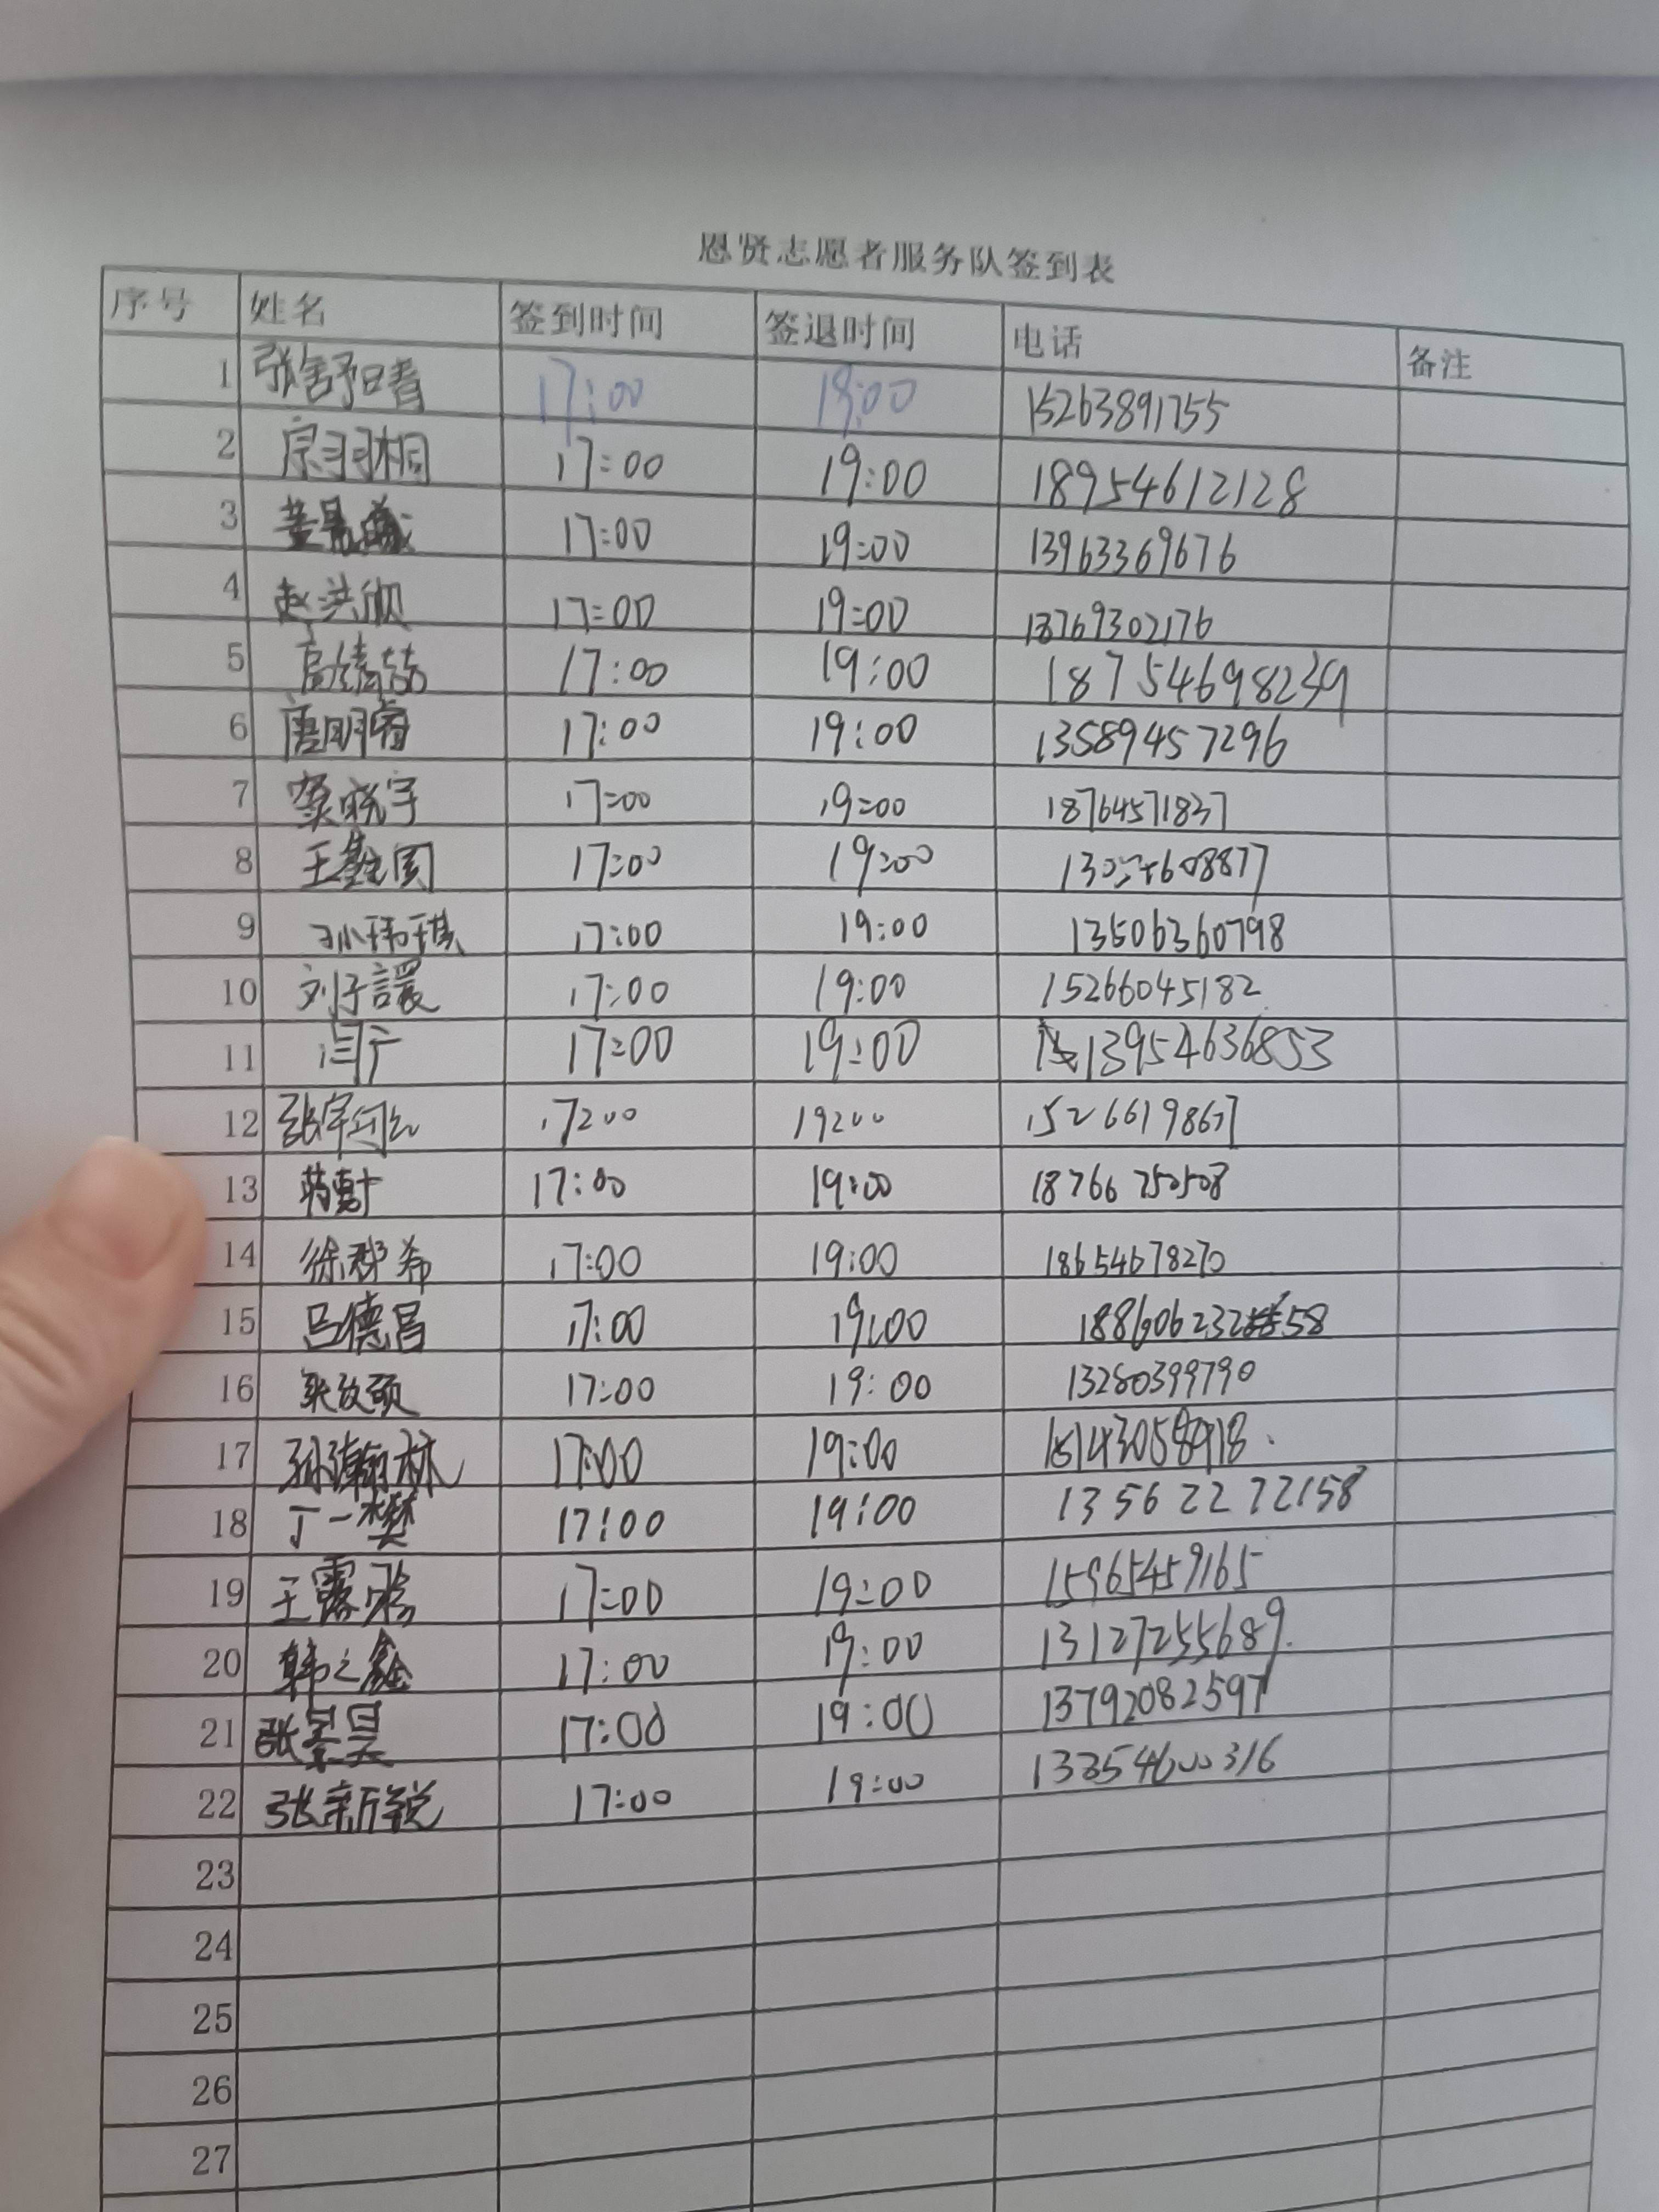 恩贤志愿者服务队签到表
序号 姓名 签到时间 签退时间 电话 备注
1 张舒阳春 17:00 19:00 15263891755
2 宗羽桐 17:00 19:00 18954612128
3 17:00 19:00 13963369676
4 赵洪欣 17:00 19:00 18769302176
5 17:00 19:00 18754698239
6 唐明睿 17:00 19:00 13589457296
7 綦晓宇 17:00 19:00 18764571837
8 17:00 19:00
9 孙玮琪 17:00 19:00 13506360798
10 刘子譞 17:00 19:00 15266045182
11 17:00 19:00 13954636853
12 17:00 19:00 15266198637
13 17:00 19:00 18766750508
14 徐郡希 17:00 19:00 18654678270
15 吕德昌 17:00 19:00
16 17:00 19:00 13280399790
17 17:00 19:00
18 丁一樊 17:00 19:00 13562272158
19 王露 17:00 19:00 15965459165
20 韩之鑫 17:00 19:00 13127255689
21 张景昊 17:00 19:00 13792082597
22 张新锐 17:00 19:00
23
24
25
26
27